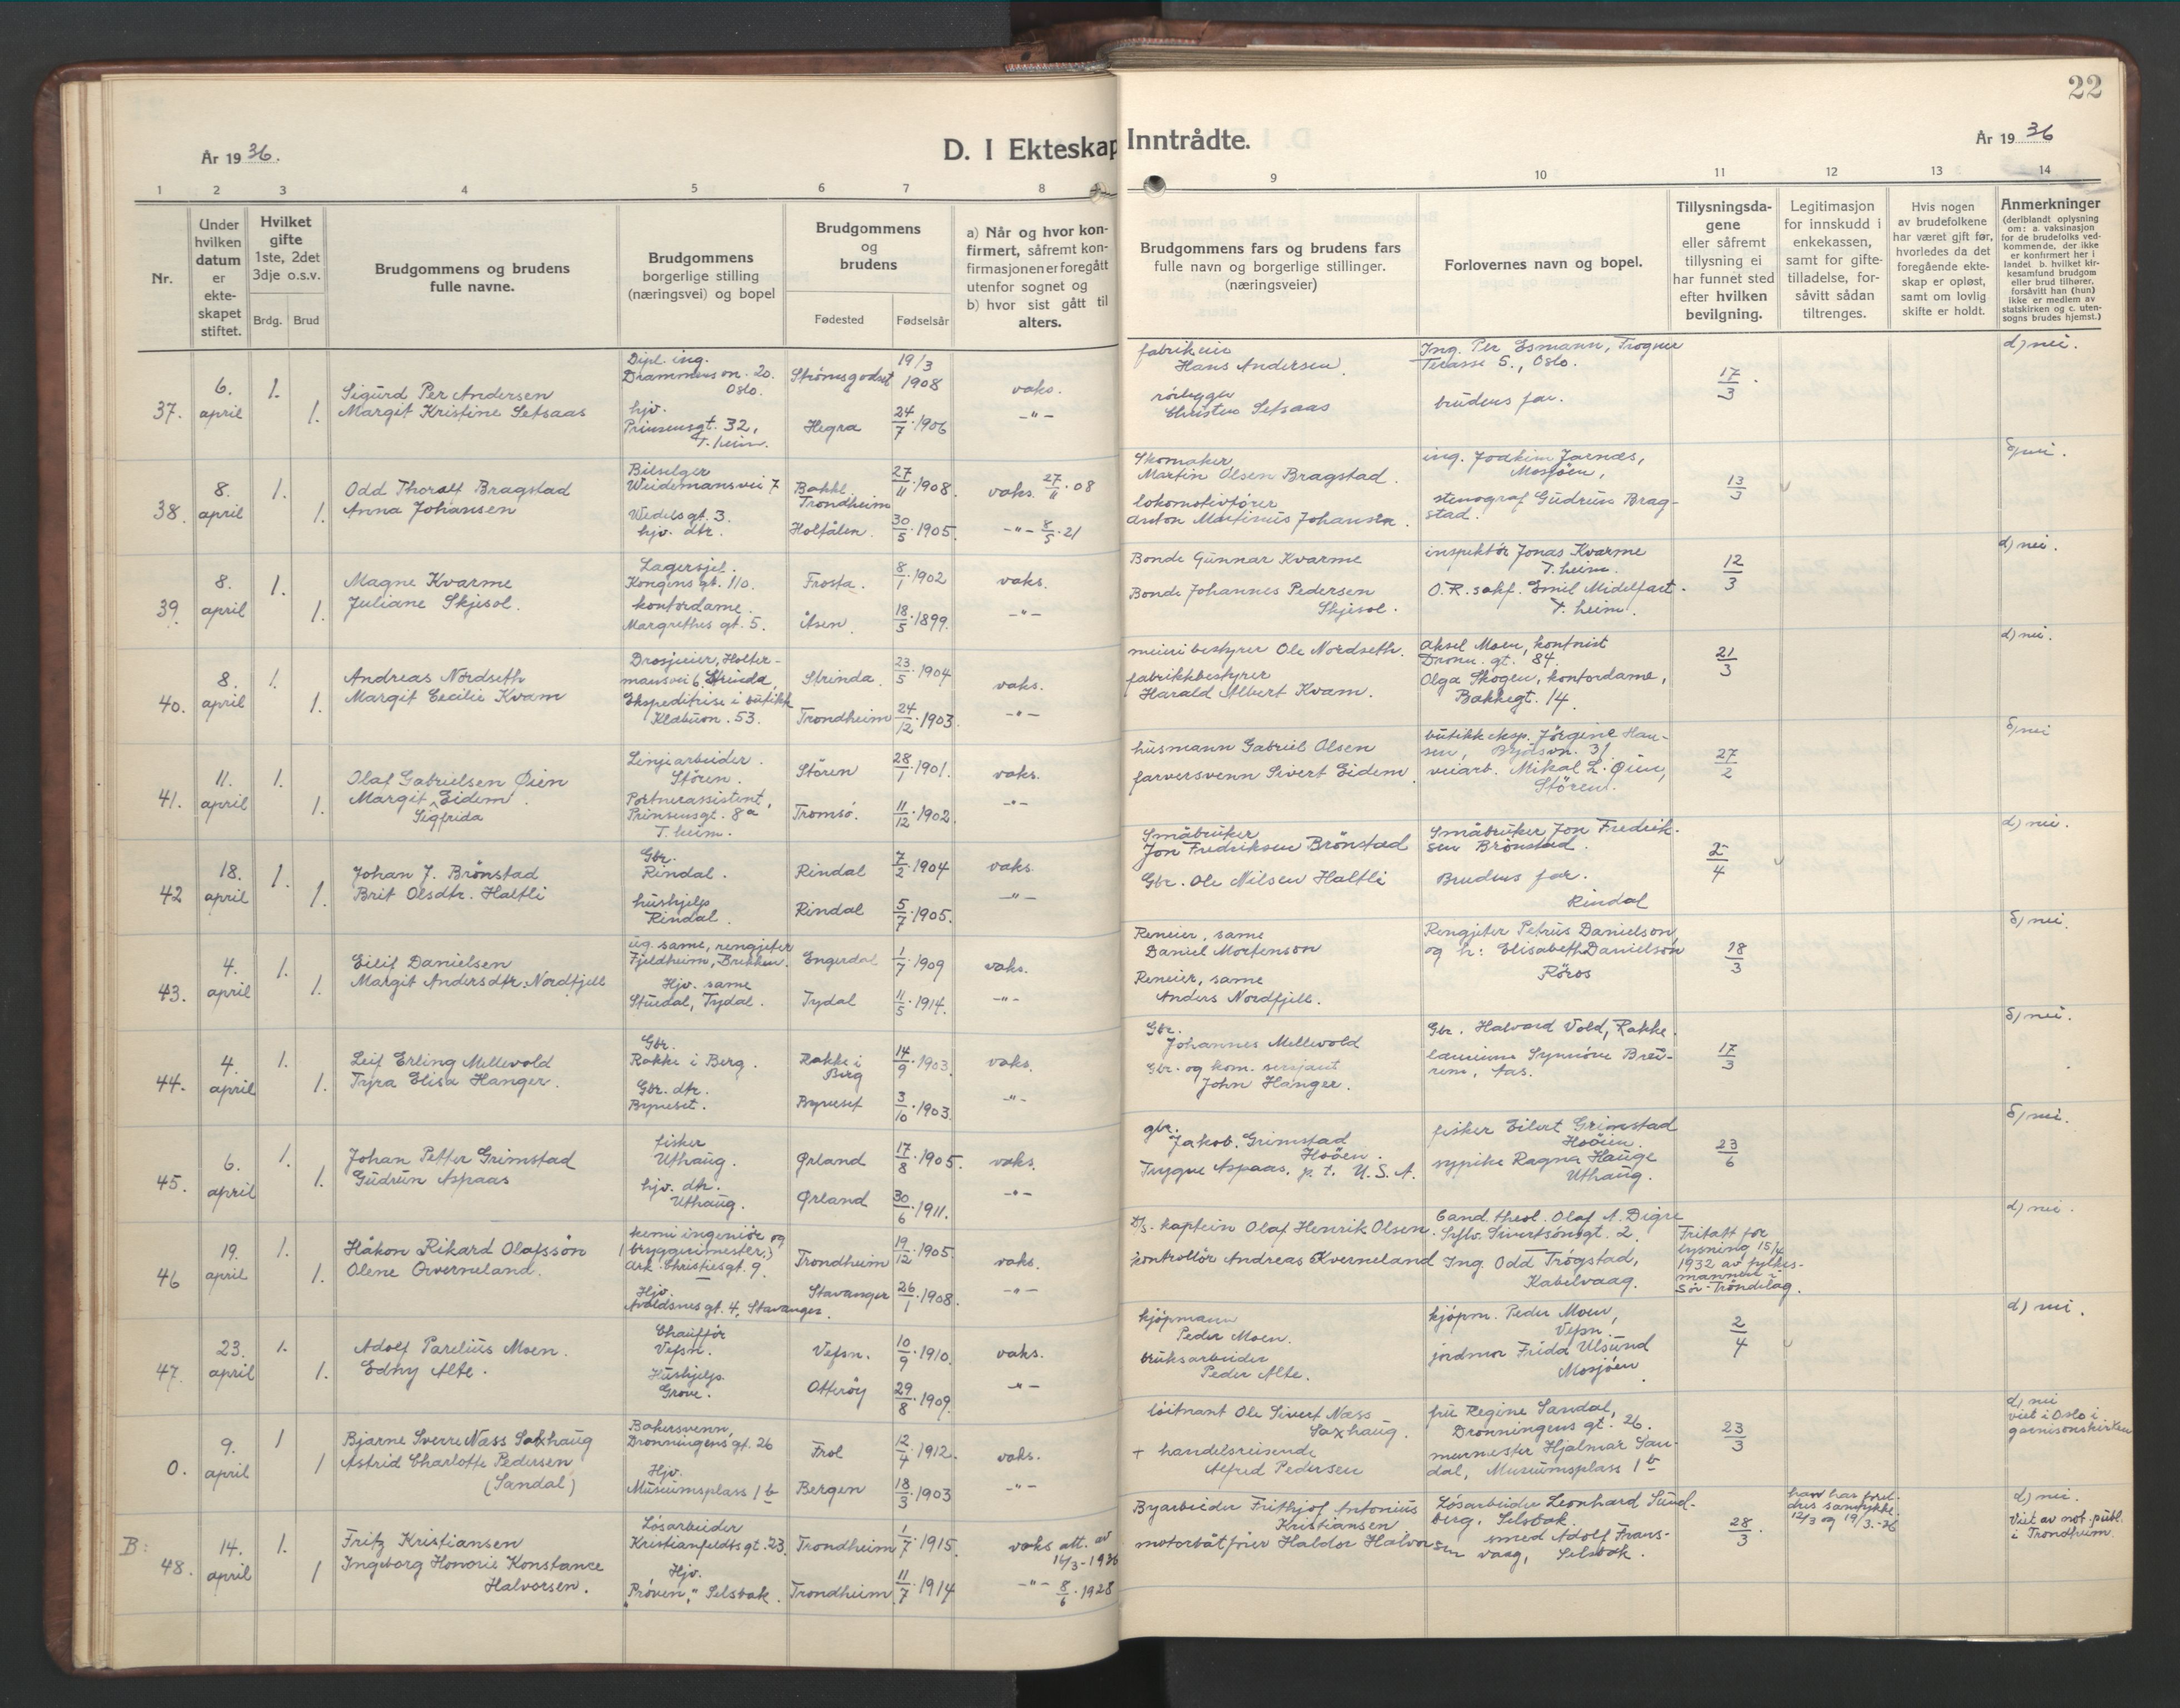 22
År 1936.
D. I Ekteskap Inntrådte.
År 1936
1 2 3 4 5 6 7 8 9 10 11 12 13 14
Nr.
Under hvilken datum er ekteskapet stiftet.
Hvilket gifte 1ste, 2det 3dje o.s.v.
Brdg. Brud
Brudgommens og brudens fulle navne.
Brudgommens borgerlige stilling (næringsvei) og bopel
Brudgommens og brudens
Fødested Fødselsår
a) Når og hvor konfirmert, såfremt konfirmasjonen er foregått utenfor sognet og b) hvor sist gått til alters.
Brudgommens fars og brudens fars fulle navn og borgerlige stillinger. (næringsveier)
Forlovernes navn og bopel.
Tillysningsdagene eller såfremt tillysning ei har funnet sted efter hvilken bevilgning.
Legitimasjon for innskudd i enkekassen, samt for giftetilladelse, forsåvitt sådan tiltrenges.
Hvis nogen av brudefolkene har været gift før, hvorledes da det foregående ekteskap er opløst, samt om lovlig skifte er holdt.
Anmerkninger
(deriblandt oplysning om: a. vaksinasjon for de brudefolks vedkommende, der ikke er konfirmert her i landet b. hvilket kirkesamfund brudgom eller brud tilhører, forsåvitt han (hun) ikke er medlem av statskirken og c. utensogns brudes hjemst.)
37. 6. april 1. 1.
Sigurd Per Andersen
Margit Kristine Setsaas
Dipl. ing.
Drammensvn. 20.
Oslo.
hjv.
Prinsensgt. 32,
T.heim.
Strömsgodset 19/3 1908
Hegra 24/7 1906
vaks.
-"-
fabrikeier
Hans Andersen.
rørlegger
Christen Setsaas
Ing. Per Esmann, Trogner
Terasse 5., Oslo.
brudens far.
17/3.
d) nei.
38. 8. april 1. 1.
Odd Thoralf Bragstad
Anna Johansen
Bilselger
Weidemansvei 7
Wedelsgt. 3.
hjv. dtr.
Bakke Trondheim 27/11 1908.
Holtålen. 30/5 1905.
vaks. 27/11 08
-"- 8/5 21
Skomaker
Martin Olsen Bragstad.
lokomotivfører
Anton Martinius Johansen.
ing. Joakim Jarnæs,
Mosjöen,
stenograf Gudrun Bragstad.
13/3
39. 8. april 1. 1.
Magne Kvarme
Juliane Skjesol.
Lagersjef.
Kongens gt. 110.
kontordame.
Margrethes gt. 5.
Frosta. 8/1 1902
Åsen. 18/5 1899.
vaks.
-"-
Bonde Gunnar Kvarme
Bonde Johannes Pedersen
Skjesol.
inspektör Jonas Kvarme
T.heim.
O.R. sakf. Emil Midelfart.
T.heim.
12/3
d) nei.
40. 8. april 1. 1.
Andreas Nordseth
Margit Cecilie Kvam
Drosjeeier, Holtermansvei 6 Strinda
Ekspeditrise i butikk
Klæbuvn. 53.
Strinda 23/5 1904
Trondheim 24/12 1903.
vaks.
-"-
meieribestyrer Ole Nordseth.
fabrikkbestyrer
Harald Albert Kvam.
Aksel Moen, kontorist
Dronn. gt. 84.
Olga Skogen, kontordame,
Bakkegt. 14.
21/3
d) nei.
41. 11. april 1. 1.
Olaf Gabrielsen Øien
Margit Sigfrida Eidem.
Linjearbeider.
Stören.
Portnerassistent,
Prinsensgt. 8a
T.heim.
Stören 28/1 1901.
Tromsö. 11/12 1902.
vaks.
-"-
husmann Gabriel Olsen
farversvenn Sivert Eidem.
butikkeksp. Jørgine Hansen, 31
veiarb. Mikal L. Øien,
Stören.
27/2
nei
42 18. april 1. 1.
Johan J. Brönstad
Brit Olsdtr. Haltli
Gbr.
Rindal.
hushjelp
Rindal.
Rindal 7/2 1904
Rindal 5/7 1905.
vaks.
-"-
Småbruker
Jon Fredriksen Brönstad
Gbr. Ole Nilsen Haltli
Småbruker Jon Fredriksen Brönstad.
Brudens far.
Rindal
2/4
d) nei.
43. 4. april 1. 1.
Eilif Danielsen
Margit Andersdtr. Nordfjell
ug. same, rengjeter
Fjeldheim, Brekken.
Hjv. same
Stuedal, Tydal.
Engerdal 1/7 1909
Tydal 11/5 1914.
vaks.
-"-
Reneier, same
Daniel Mortenson
Reneier, same
Anders Nordfjell.
Rengjeter Petrus Danielson
og h: Elisabeth Danielson
Röros
18/3
nei.
44. 4. april 1. 1.
Leif Erling Mellevold
Tyra Elisa Hanger.
Gbr.
Rokke i Berg.
Gbr. dtr.
Byneset.
Rokke i Berg 14/9 1903.
Byneset 3/10 1903.
vaks.
-"-
Gbr.
Johannes Mellevold
Gbr. og kom. sersjant
John Hanger.
Gbr. Halvard Vold, Rakke.
17/3
nei.
45. 6. april 1. 1.
Johan Petter Grimstad
Gudrun Aspaas
fisker
Uthaug.
hjv. dtr.
Uthaug.
Ørland 17/8 1905.
Ørland 30/6 1911.
vaks.
-"-
gbr.
Jakob. Grimstad
Hoöen.
Trygve Aspaas, p.t. U.S.A.
fisker Eilert Grimstad
Hoöen.
sypike Ragna Hauge
Uthaug.
23/6
nei.
46 19. april 1. 1.
Håkon Rikard Olafssön
Olene Qverneland.
kemi ingeniör og
(bryggerimester)
Ark. Christies gt. 9.
Hjv.
Avaldsnes gt. 4, Stavanger.
Trondheim 19/12 1905.
Stavanger 26/1 1908.
vaks.
-"-
D/s. kaptein Olaf Henrik Olsen.
kontrollör Andreas Kverneland
Cand. theol. Olaf A. Digre
Sylv. Sivertsönsgt. 2.
Ing. Odd Trögstad,
Kabelvaag.
Fritatt for
lysning 15/4
1932 av fylkesmannen i
Sör-Tröndelag.
d) nei.
47. 23. april 1. 1.
Adolf Parelius Moen.
Edny Alte.
Chaufför
Vefsn.
Hushjelp
Grove.
Vefsn. 10/9 1910.
Otteröy 29/8 1909.
vaks.
-"-
kjöpmann
Peder Moen.
bruksarbeider
Peder Alte.
kjöpm. Peder Moen,
Vefsn.
jordmor Frida Ulsund
Mosjöen.
2/4
d) nei.
0. 9. april 1 1
Bjarne Sverre Næss Saxhaug
Astrid Charlotte Pedersen
(Sandal)
Bakersvenn,
Dronningens gt. 26
Hjv.
Museumsplass 1 b
Frol 12/4 1912.
Bergen 18/3 1903
vaks.
-"-
löitnant Ole Sivert Næss
Saxhaug.
+ handelsreisende
Alfred Pedersen
fru Regine Sandal,
Dronningens gt. 26.
murmester Hjalmar Sandal, Museumsplass 1 b
23/3
d) nei
viet i Oslo i
garnisonskirken
B: 48. 14. april 1. 1
Fritz Kristiansen
Ingeborg Honorie Konstance
Halvorsen.
Lösarbeider
Kristianfeldts gt. 23.
Hjv.
"Pröven", Selsbak.
Trondheim 1/7 1915.
Trondheim 11/7 1914
vaks att. av
16/3-1936
-"- 8/6 1928
Byarbeider Frithjof Antonius
Kristiansen
motorbåtförer Haldor Halvorsen
Lösarbeider Leonhard Sundberg, Selsbak.
smed Adolf Fransvaag, Selsbak.
28/3.
han har foreldres samtykke
12/3 og 19/3.-36
d) nei.
Viet av not. publ.
i Trondheim